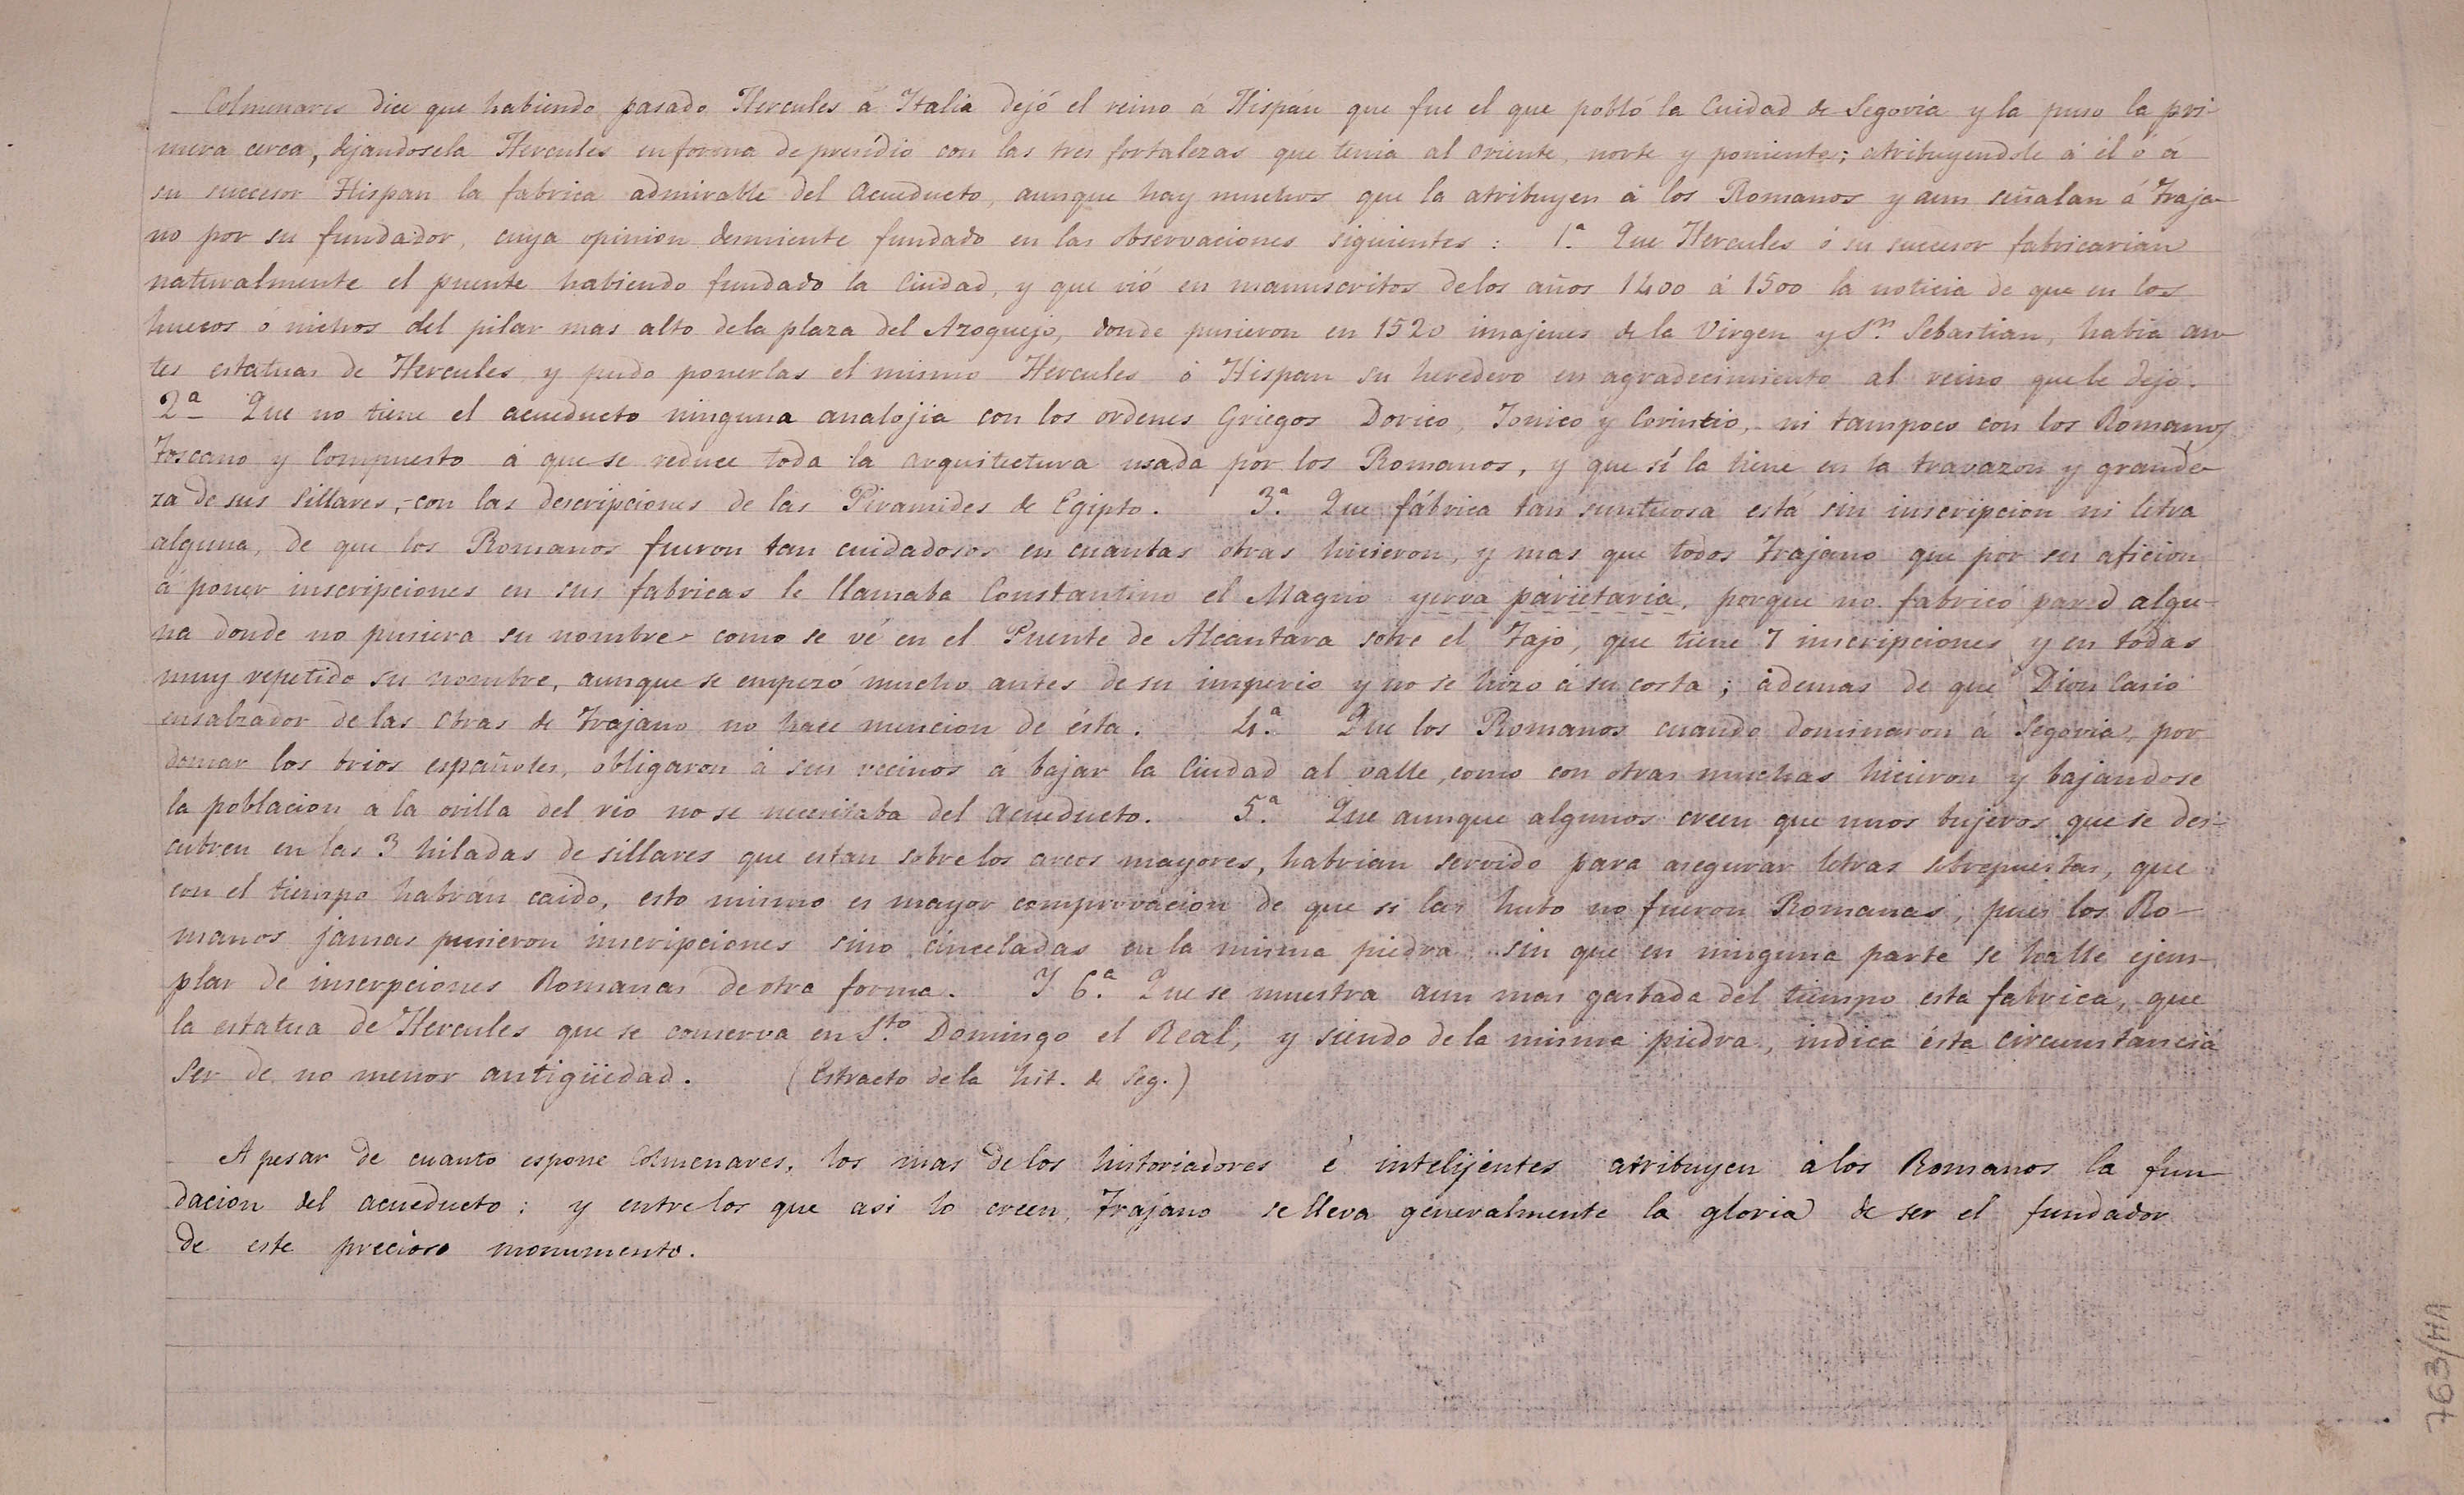 Colmenares dice que habiendo pasado Hercules á Italia dejó el reino á Hispán que fue el que pobló la Cuidad de Segovia y la puso la pri-
mera cerca, dejandosela Hercules en forma de presídio con las tres fortalezas que tenia al oriente, norte y poniente; atribuyendole á él ó á
su succesor Hispan la fabrica admirable del Acueducto, aunque hay muchos que la atribuyen á los Romanos y aun señalan á Traja-
no por su fundador, cuya opinion desmiente fundado en las observaciones siguientes: 1.ª Que Hercules ó su succesor fabricarian
naturalmente el puente habiendo fundado la Ciudad, y que vió en manuscritos de los años 1400 á 1500 la noticia de que en los
huecos ó nichos del pilar mas alto de la plaza del Azoguejo, donde pusieron en 1520 imajenes de la Virgen y S.n Sebastian, habia an-
tes estatuas de Hercules y pudo ponerlas el mismo Hercules ó Hispan su heredero en agradecimiento al reino que le dejó.
2.ª Que no tiene el acueducto ninguna analojia con los ordenes Griegos Dorico, Jonico y Corintio, ni tampoco con los Romanos
Toscano y Compuesto á que se reduce toda la arquitectura usada por los Romanos, y que sí la tiene en la travazon y grande-
za de sus sillares, con las descripciones de las Piramides de Egipto. 3.ª Que fábrica tan suntuosa está sin inscripcion ni letra
alguna, de que los Romanos fueron tan cuidadosos en cuantas obras hicieron, y mas que todos Trajano que por su aficion
á poner inscripciones en sus fabricas le llamaba Constantino el Magno yerva parietaria, porque no fabricó pared algu-
na donde no pusiera su nombre como se vé en el Puente de Alcantara sobre el Tajo, que tiene 7 inscripciones y en todas
muy repetido su nombre, aunque se empezó mucho antes de su imperio y no se hizo á su costa; ademas de que Dion Casio
ensalzador de las Obras de Trajano no hace mencion de ésta. 4.ª Que los Romanos cuando dominaron á Segovia, por
domar los brios españoles, obligaron á sus vecinos á bajar la Ciudad al valle, como con otras muchas hicieron y bajandose
la poblacion a la orilla del rio no se necesitaba del Acueducto. 5.ª Que aunque algunos creen que unos bujeros que se des-
cubren en las 3 hiladas de sillares que estan sobre los arcos mayores, habrian servido para asegurar letras sobrepuestas, que
con el tiempo habrán caido, esto mismo es mayor comprovacion de que si las hubo no fueron Romanas, pues los Ro-
manos jamas pusieron inscripciones sino cinceladas en la misma piedra sin que en ninguna parte se halle ejem-
plar de inscrpciones Romanas de otra forma. Y 6.ª Que se muestra aun mas gastada del tiempo esta fabrica, que
la estatua de Hercules que se conserva en S.to Domingo el Real, y siendo de la misma piedra, indica ésta circunstancia
ser de no menor antigüedad. (Estracto de la hit. de Seg.)
A pesar de cuanto espone Colmenares, los mas de los historiadores é intelijentes atribuyen á los Romanos la fun-
dacion del acueducto: y entre los que asi lo creen, Trajano se lleva generalmente la gloria de ser el fundador
de este precioso monumento.